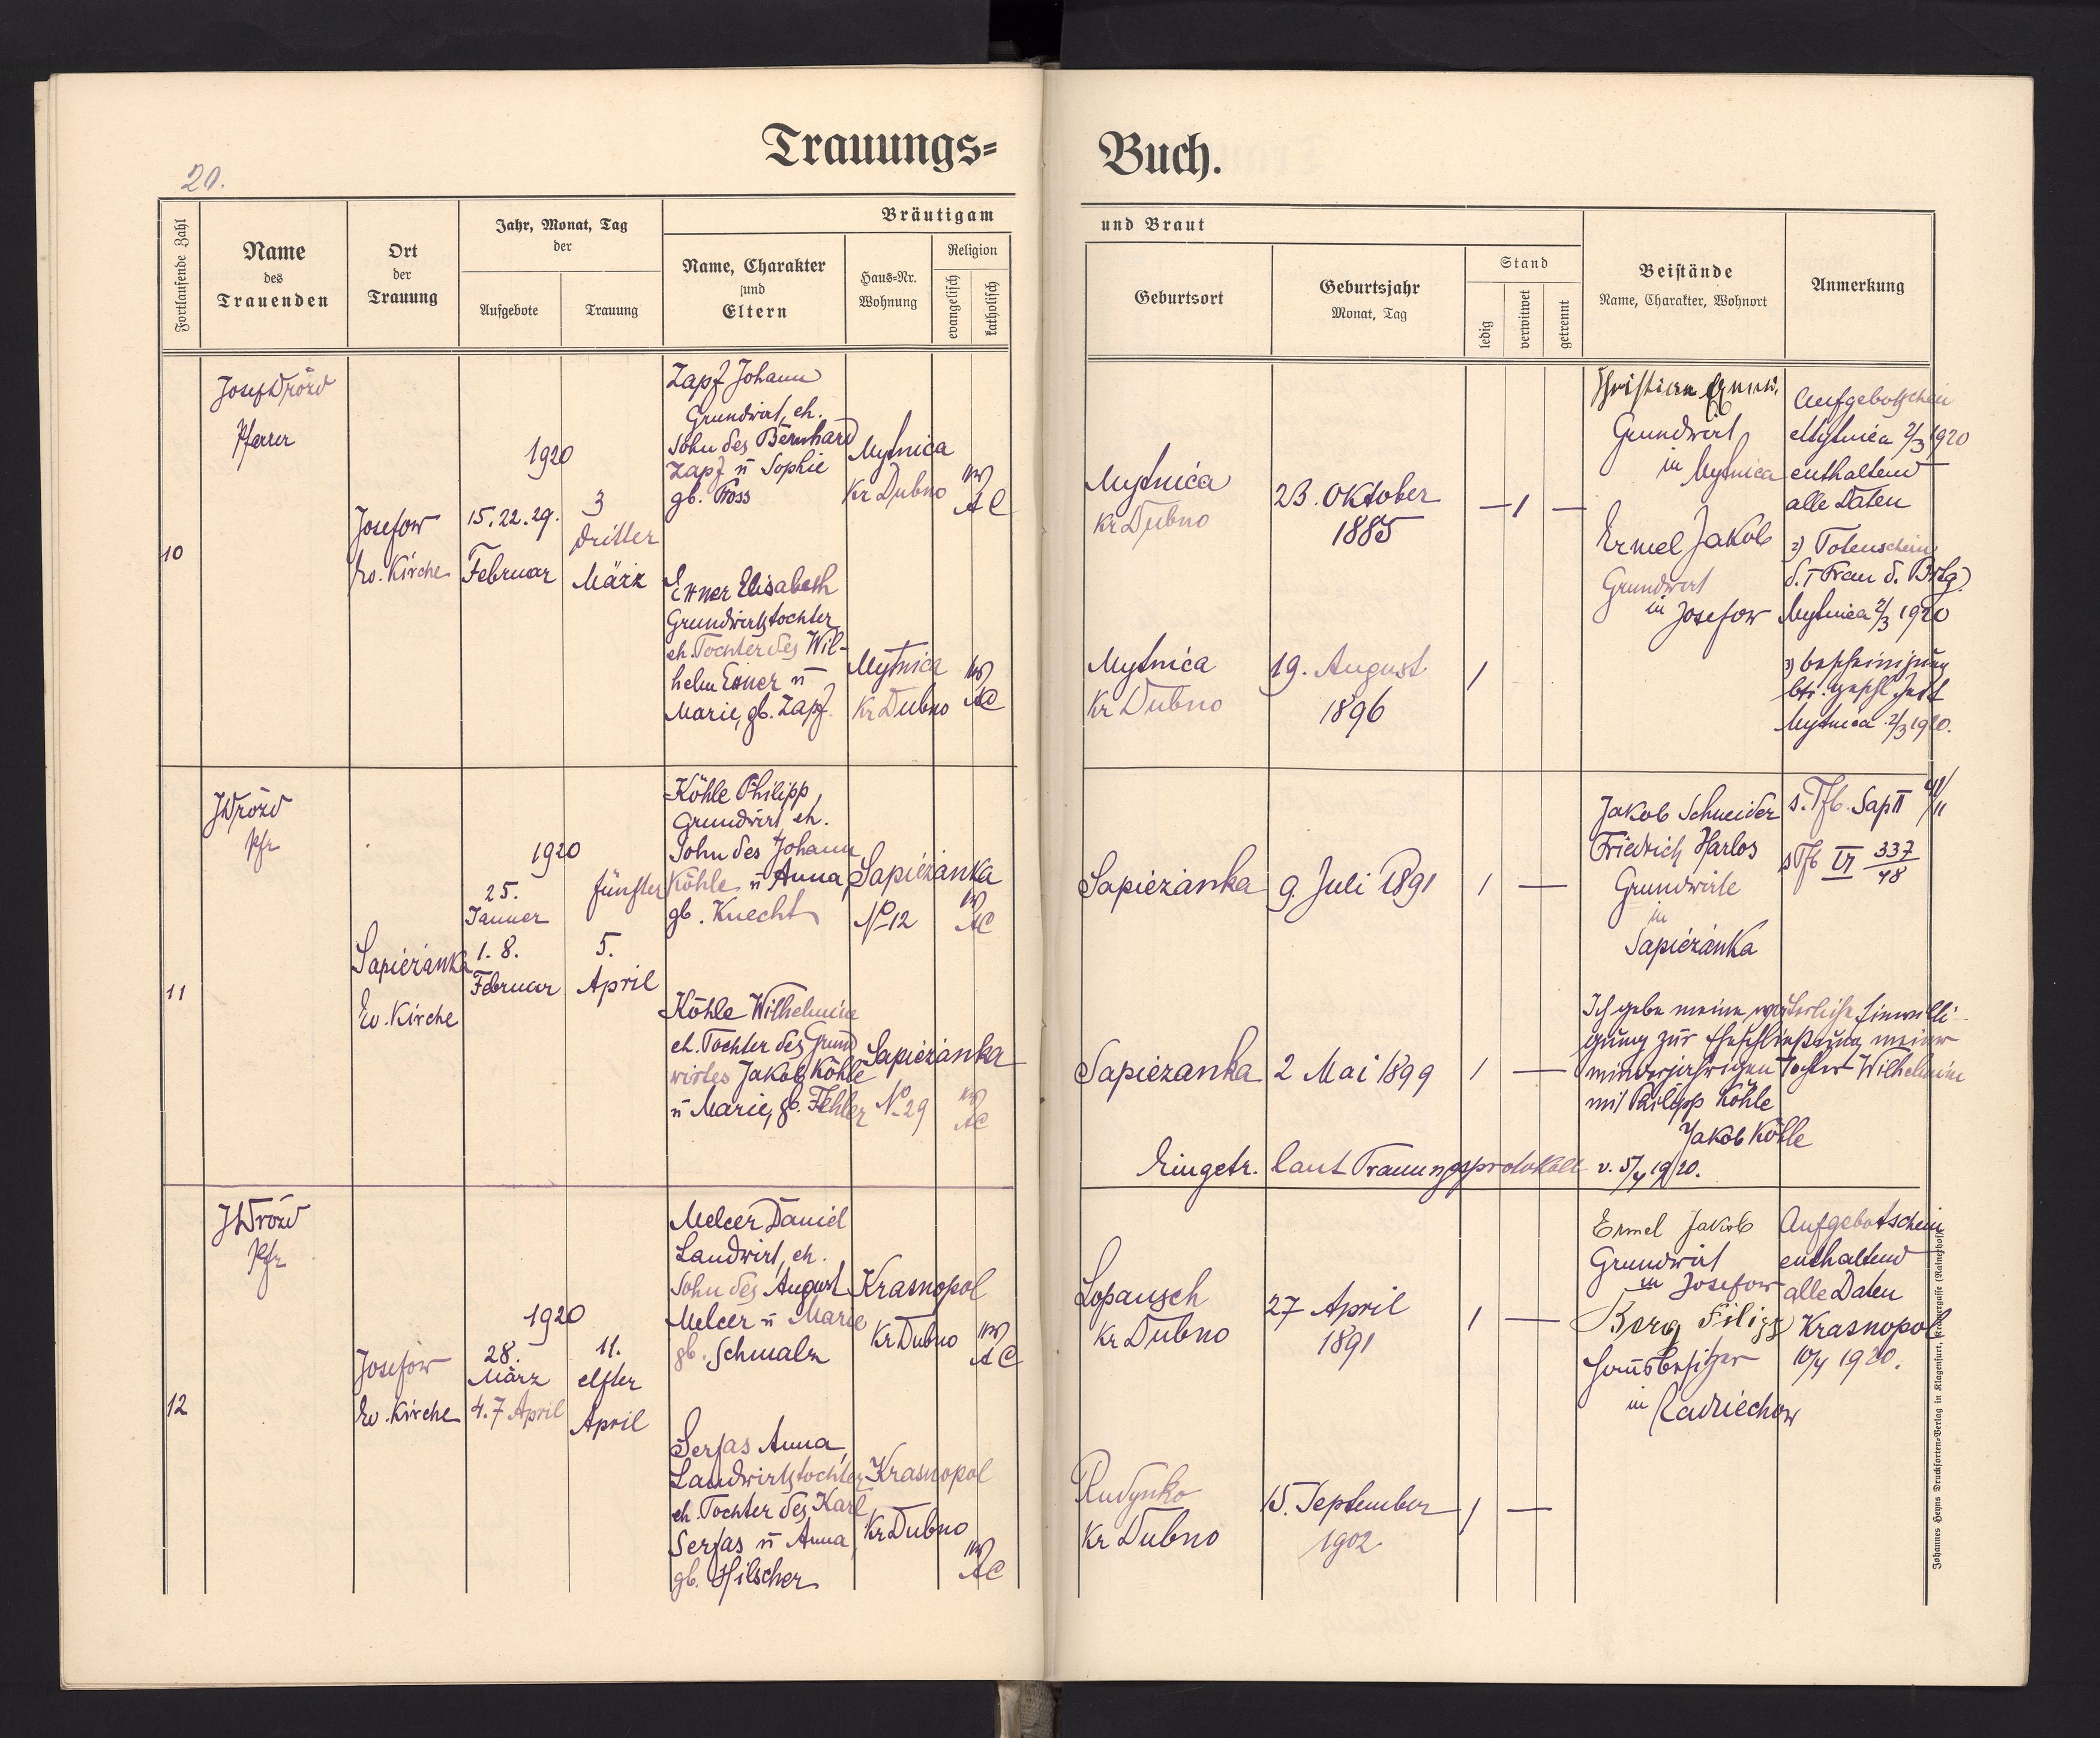 Trauungs=
Buch.
20.
Fortlaufende Zahl
Name
des
Trauenden
Ort
der
Trauung
Jahr, Monat, Tag
der
Aufgebote
Trauung
Bräutigam
Name, Charakter
und
Eltern
Haus=Nr.
Wohnung
Religion
evangelisch
katholisch
und Braut
Geburtsort
Geburtsjahr
Monat, Tag
Stand
ledig
verwitwet
getrennt
Beistände
Name, Charakter, Wohnort
Anmerkung
10
Josef Drózd
Pfarrer
Josefow
Ev. Kirche
1920
15. 22. 29.
Februar
3
dritter
März
Zapf Johann
Grundwirt, eh.
Sohn des Bernhard
Zapf u Sophie
gb.
Mytnica
Kr Dubno
AC
Ettner Elisabeth
Grundwirtstochter
eh. Tochter des Wil-
helm Ettner u
Marie, gb. Zapf
Mytnica
Kr Dubno
AC
Mytnica
Kr Dubno
23. Oktober
1885
— 1 —
Mytnica
Kr Dubno
19. August
1896
1
Christian
Grundwirt
in Mytnica
Ermel Jakob
Grundwirt
in Josefow
Aufgebotschein
Mytnica 2/3 1920
enthaltend
alle Daten
2) Totenschein
d. I Frau d. Brtg.
Mytnica 2/3 1920
3) Bescheinigung
Mytnica 2/3 1920.
11
J Drózd
Pfr
Sapieżanka
Ev. Kirche
1920
25.
Jänner
1. 8.
Februar
fünfter
5.
April
Köhle Philipp,
Grundwirt, eh.
Sohn des Johann
Köhle u Anna,
gb. Knecht
Sapieżanka
No 12
AC
Köhle Wilhelmine
eh. Tochter des Grund
wirtes Jakob Köhle
u Marie, gb. Fehler
Sapieżanka
No 29
AC
Sapieżanka
9. Juli 1891
1 —
Sapieżanka
2 Mai 1899
1 —
Jakob Schneider
Friedrich Harlos
Grundwirte
in
Sapieżanka
s. Tfb. Sap II
s Tfb II 337/48
Ich gebe meine väterliche Einwilli-
gung zur Eheschließung meiner
minderjährigen Tochter Wilhelmine
mit Philipp Köhle
Jakob Köhle
Eingetr. laut Trauungsprotokoll v. 5/4 1920.
12
J Drózd
Pfr
Josefow
Ev. Kirche
1920
28.
März
4. 7 April
11.
elfter
April
Melcer Daniel
Landwirt, eh.
Sohn des August
Melcer u Marie
gb. Schmalz
Krasnopol
Kr Dubno
AC
Serfas Anna,
Landwirtstochter
eh. Tochter des Karl
Serfas u Anna,
gb. Hilscher
Krasnopol
Kr Dubno
AC
Lopausch
Kr Dubno
27 April
1891
1 —
Rudynko
Kr Dubno
15. September
1902
1 —
Ermel Jakob
Grundwirt
in Josefow
Berg Filipp
Hausbesitzer
in Radziechow
Aufgebotschein
enthaltend
alle Daten
Krasnopol
10/4 1920.